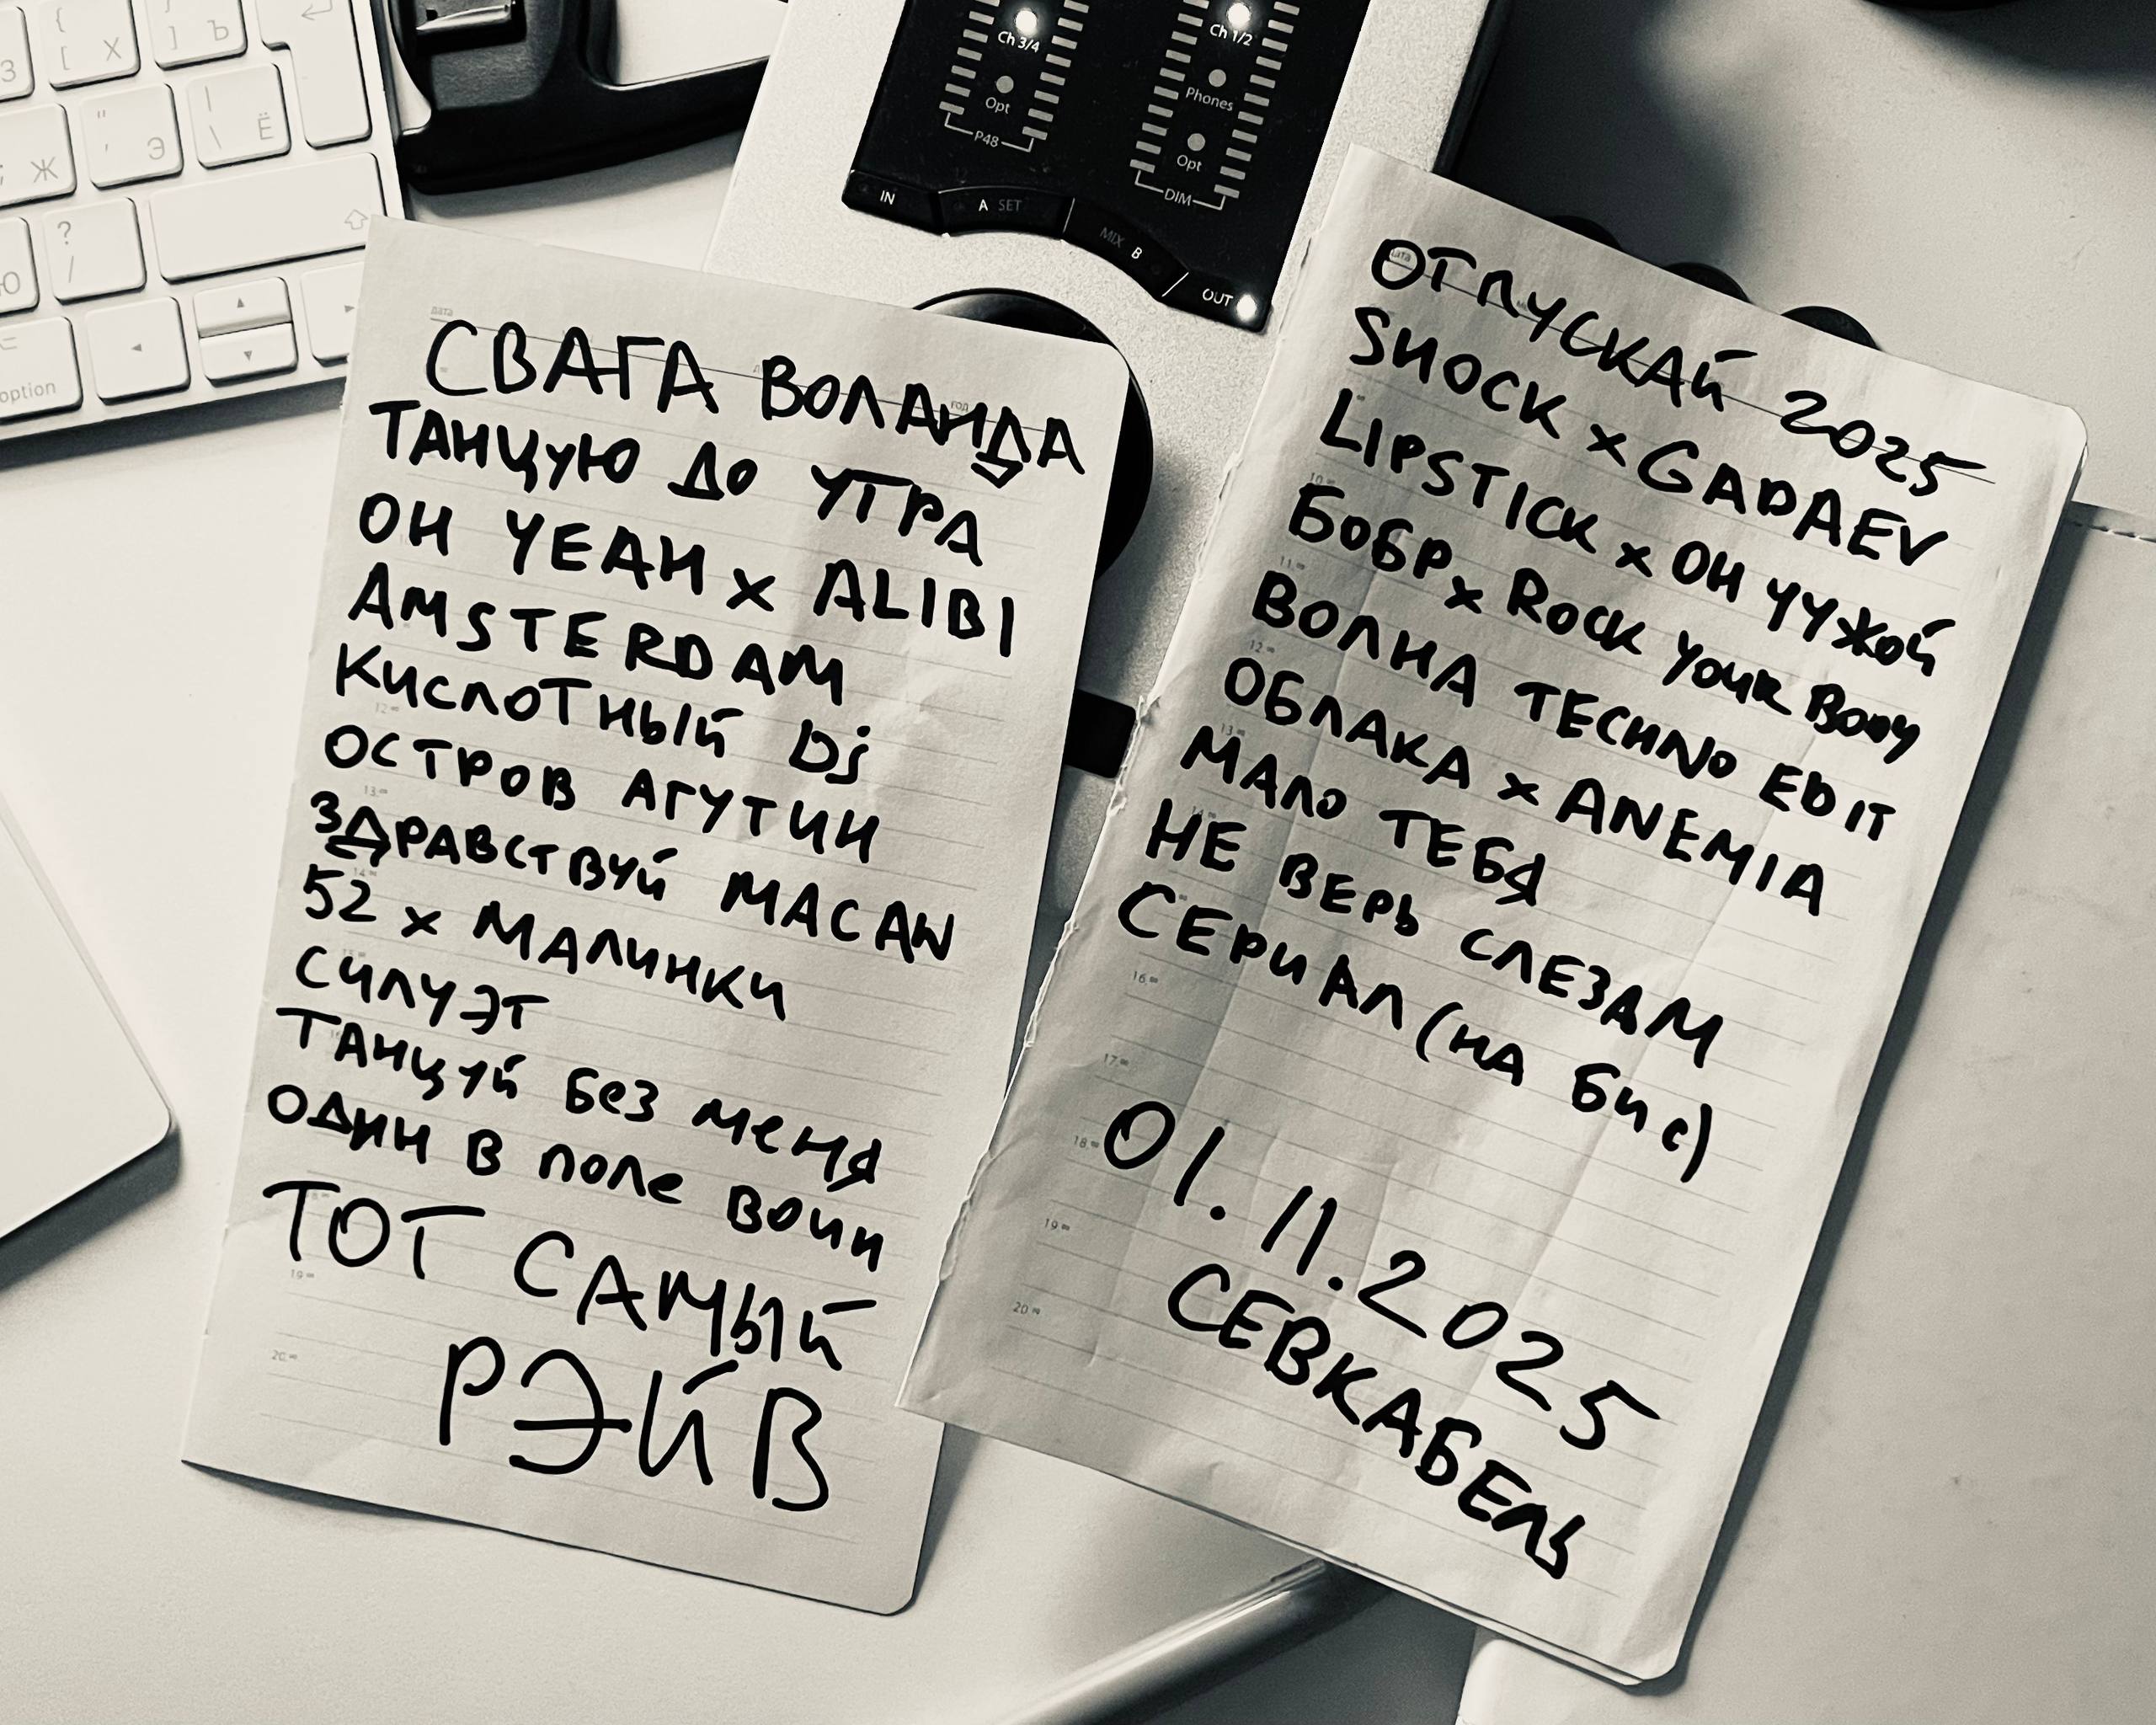 {
[ Х
}
] Ъ
З
; Ж
"
' Э
|
\ Ё
?
/
Ю
option
Ch 3/4
Opt
P48
Ch 1/2
Phones
Opt
DIM
IN
A SET
MIX B
OUT
дата
год
СВАГА ВОЛАНДА
ТАНЦУЮ ДО УТРА
OH YEAH x ALIBI
AMSTERDAM
КИСЛОТНЫЙ Dj
ОСТРОВ АГУТИН
ЗДРАВСТВУЙ MACAN
52 x МАЛИНКИ
СИЛУЭТ
ТАНЦУЙ БЕЗ МЕНЯ
ОДИН В ПОЛЕ ВОИН
ТОТ САМЫЙ
РЭЙВ
12.00
13.00
14.00
19.00
20.00
дата
ОТПУСКАЙ 2025
SHOCK x GADAEV
LIPSTICK x ОН ЧУЖОЙ
БОБР x ROCK YOUR BODY
ВОЛНА TECHNO EDIT
ОБЛАКА x ANEMIA
МАЛО ТЕБЯ
НЕ ВЕРЬ СЛЕЗАМ
СЕРИАЛ (НА БИС)
01.11.2025
СЕВКАБЕЛЬ
10.00
11.00
12.00
13.00
14.00
16.00
17.00
18.00
19.00
20.00